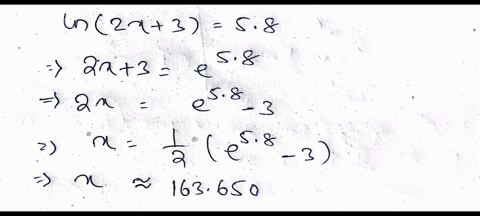 ln(2x+3) = 5.8
=> 2x+3 = e^5.8
=> 2x = e^5.8 - 3
=> x = 1/2 (e^5.8 - 3)
=> x ≈ 163.650